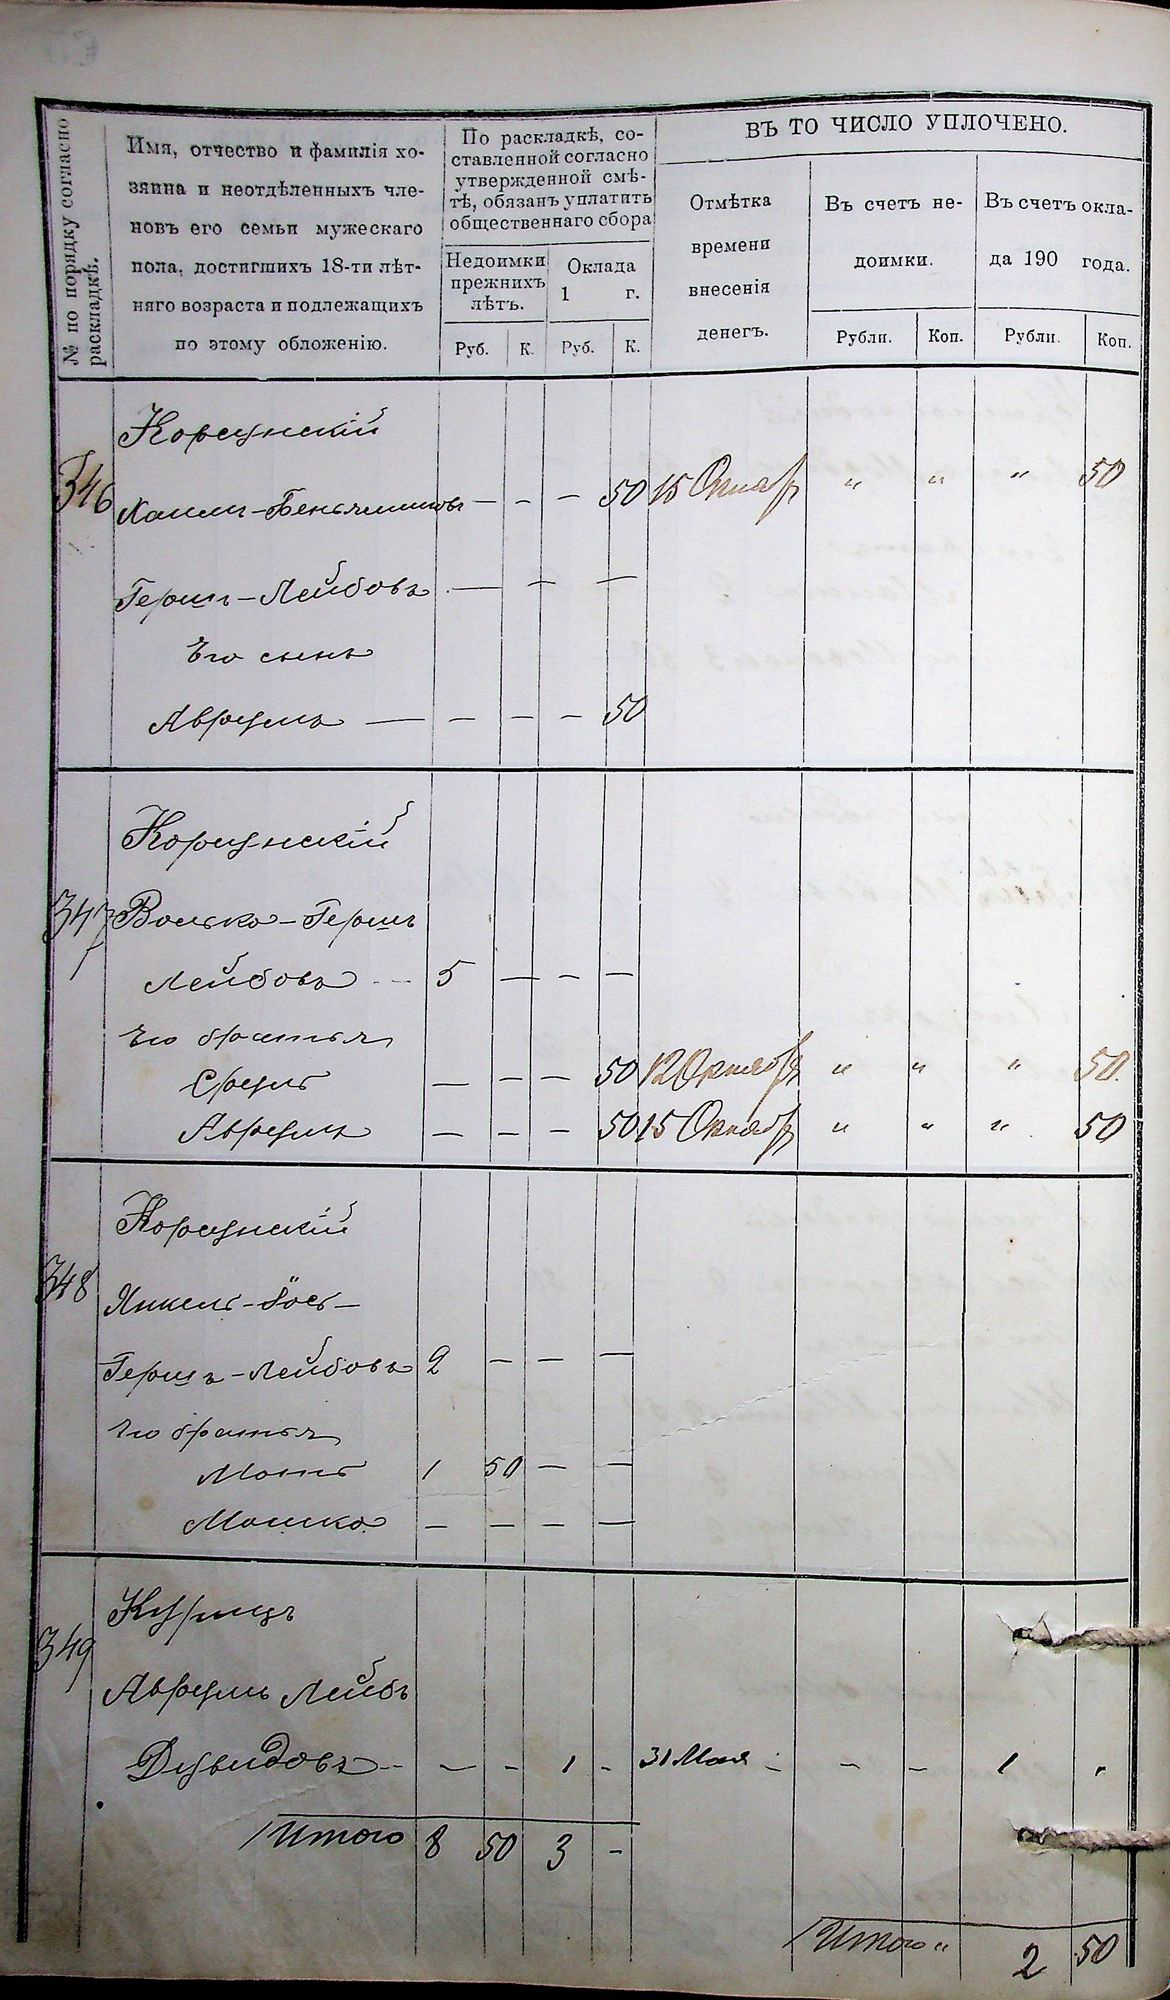 № по порядку согласно раскладкѣ.
Имя, отчество и фамилія хо-
зяина и неотдѣленныхъ чле-
новъ его семьи мужескаго
пола, достигшихъ 18-ти лѣт-
няго возраста и подлежащихъ
по этому обложенію.
По раскладкѣ, со-
ставленной согласно
утвержденной смѣ-
тѣ, обязанъ уплатить
общественнаго сбора
Недоимки прежнихъ лѣтъ.
Оклада 1 г.
Руб. К. Руб. К.
ВЪ ТО ЧИСЛО УПЛОЧЕНО.
Отмѣтка
времени
внесенія
денегъ.
Въ счетъ не-
доимки.
Въ счетъ окла-
да 190 года.
Рубли. Коп. Рубли. Коп.
Корсунскій
346 Хаимъ-Беньяминовъ — - — 50 15 Октяб " " " 50
Гершъ-Лейбовъ — — —
Его сынъ
Аврумъ — — — — 50
Корсунскій
347 Волько-Гершъ
Лейбовъ 5 — — —
Его братья
Сруль — — — 50 12 Октября " " " 50.
Аврумъ — — — 50 15 Октяб " " " 50
Корсунскій
348
Янкель-Іось-
Гершъ-Лейбовъ 2 — — —
Его братья
Моть 1 50 — —
Мошко — — — —
Курицъ
349
Аврумъ Лейбъ
Дувидовъ — - 1 - 31 Мая - — — 1 "
Итого 8 50 3 -
Итого " 2 50